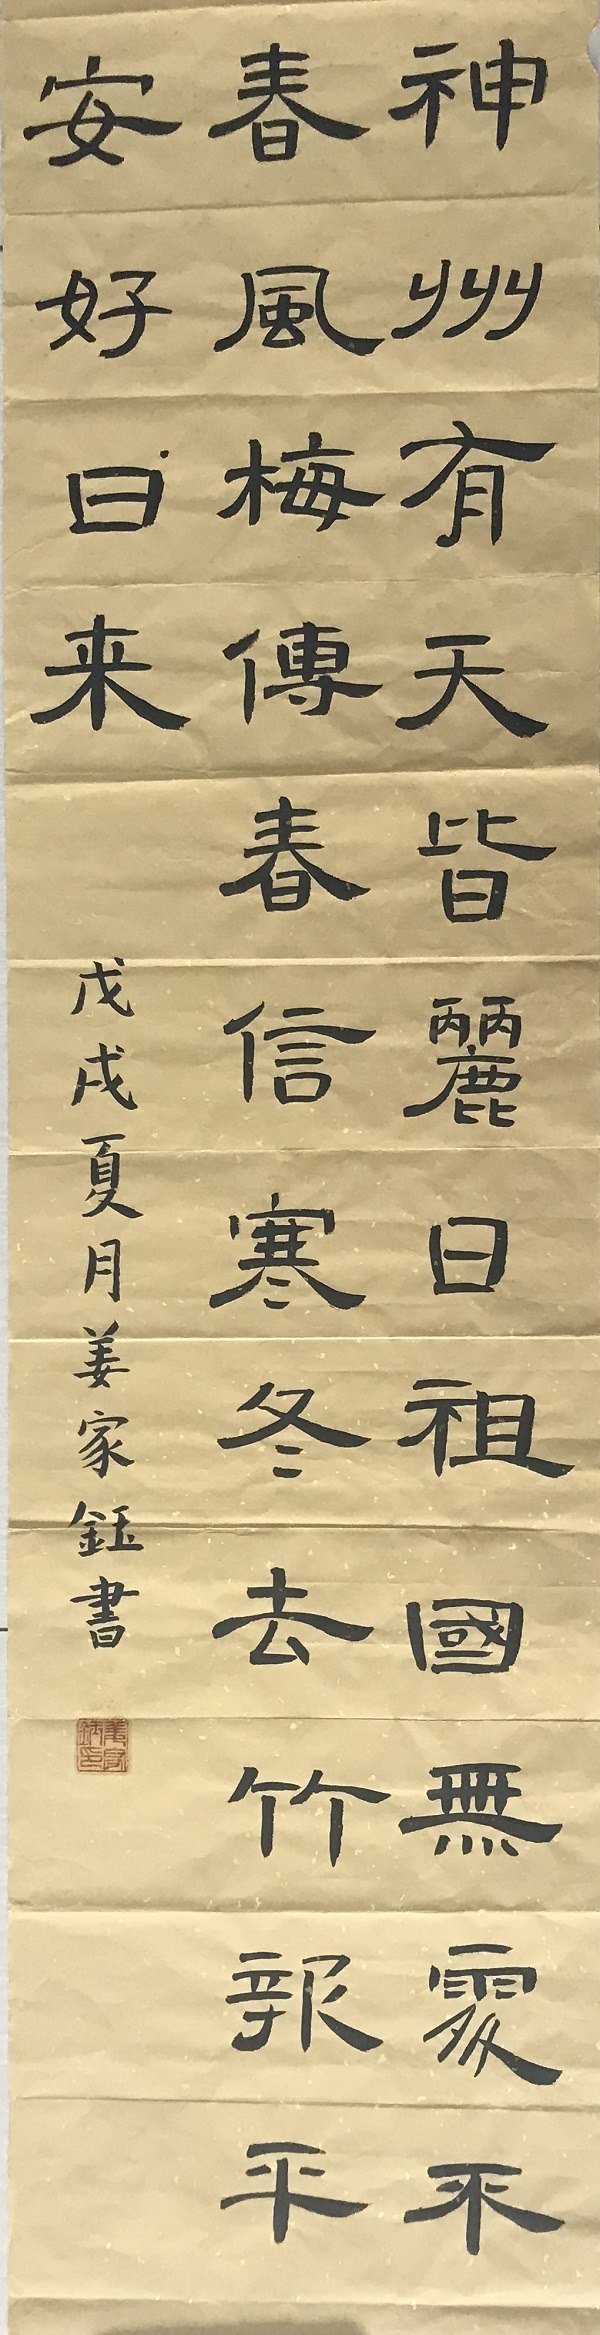 神州有天皆麗日祖國無處不
春風梅傳春信寒冬去竹報平
安好日来
戊戌夏月姜家鈺書